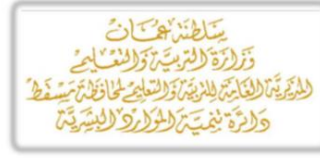 سلطنة عمان
وزارة التربية والتعليم
المديرية العامة للتربية والتعليم لمحافظة مسقط
دائرة تنمية الموارد البشرية